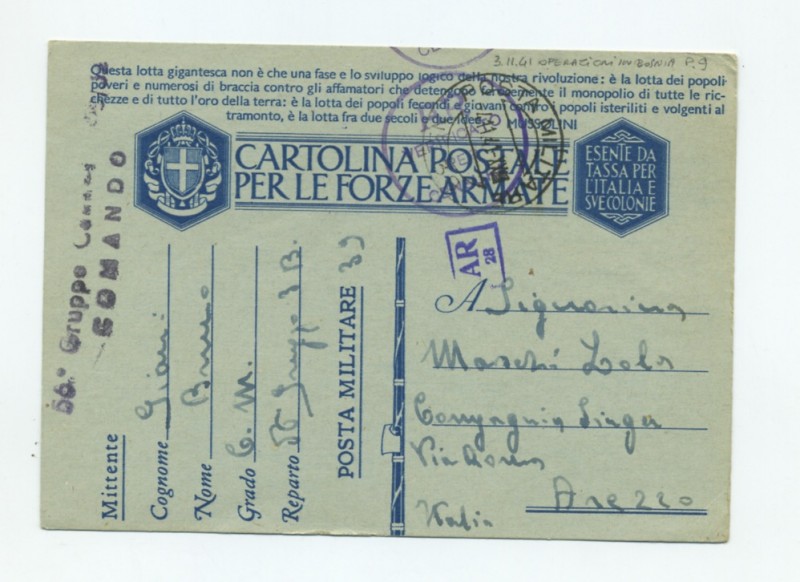 3.11.41 OPERAZIONI IN BOSNIA P.9
Questa lotta gigantesca non è che una fase e lo sviluppo logico della nostra rivoluzione: è la lotta dei popoli
poveri e numerosi di braccia contro gli affamatori che detengono ferocemente il monopolio di tutte le ric-
chezze e di tutto l'oro della terra: è la lotta dei popoli fecondi e giovani contro i popoli isteriliti e volgenti al
tramonto, è la lotta fra due secoli e due idee. MUSSOLINI
CARTOLINA POSTALE
PER LE FORZE ARMATE
ESENTE DA
TASSA PER
L'ITALIA E
SVE COLONIE
VERIFICATO
POSTA MILITARE
56° Gruppo
COMANDO
AR
28
Mittente
Cognome
Nome Bruno
Grado C. M.
Reparto 56 Gruppo
POSTA MILITARE 39
A Signorina
Maschi Lola
Compagnia Singer
Via Roma
Arezzo
Italia